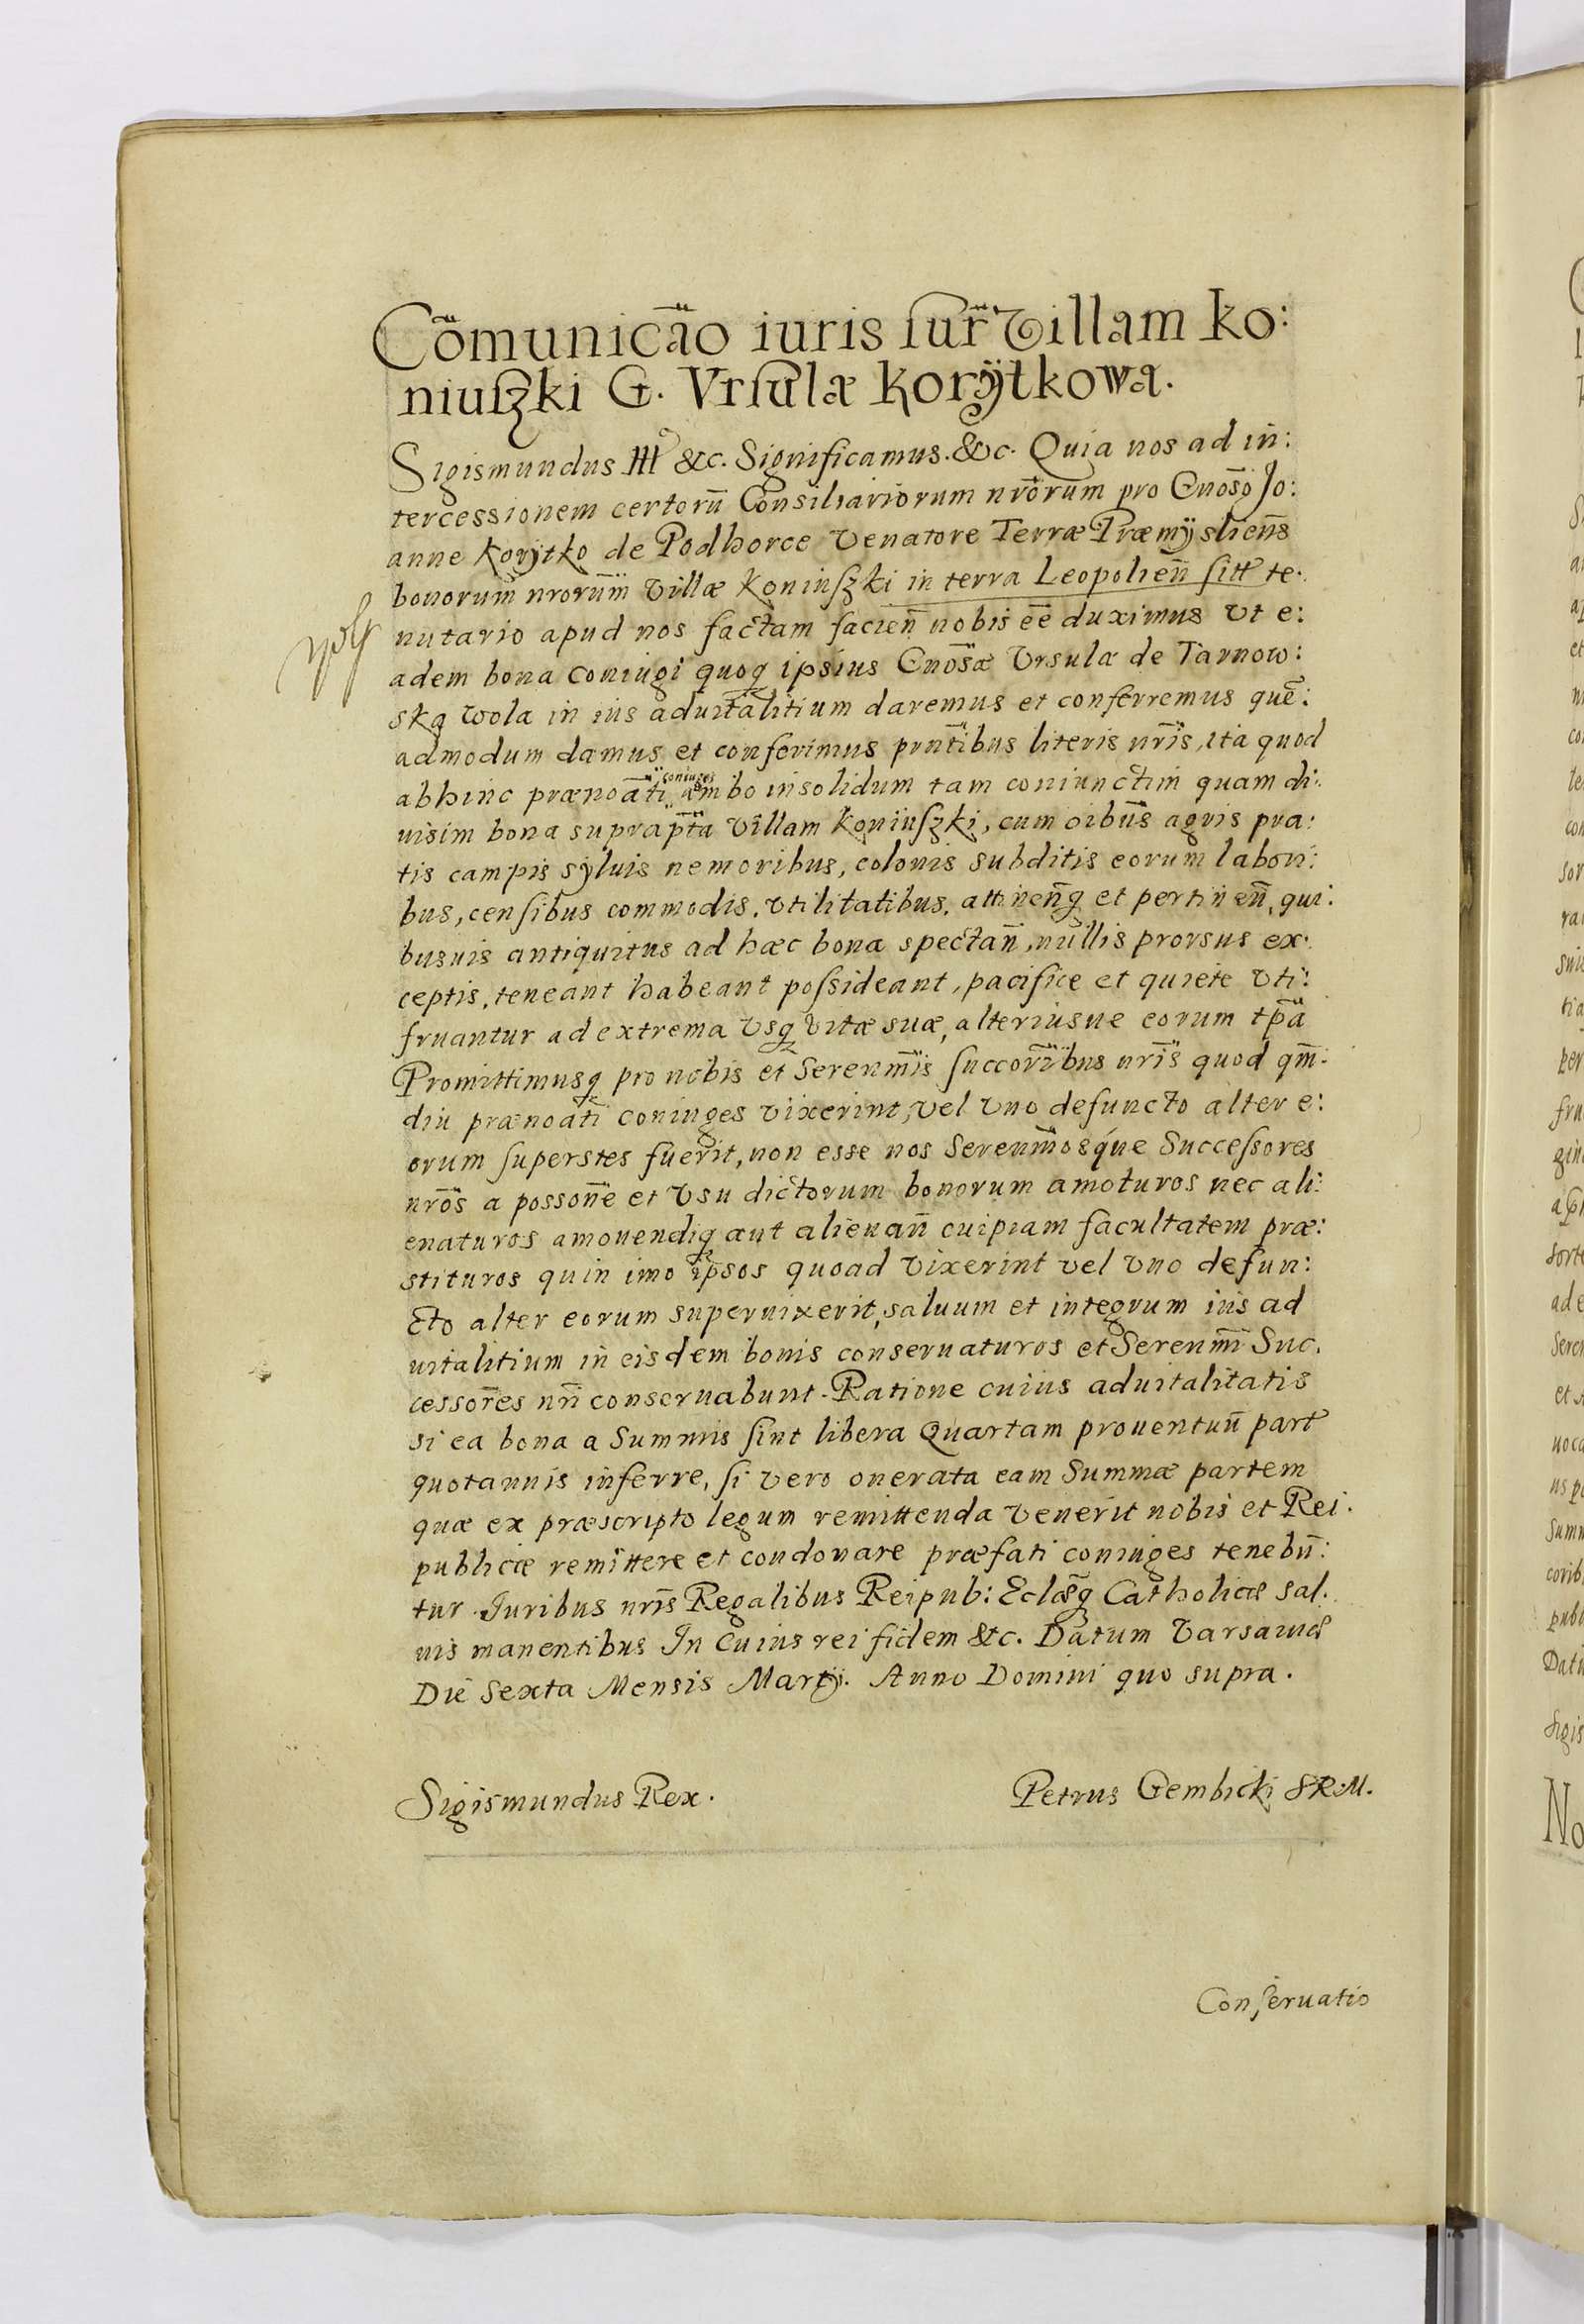 Cõmunicão iuris sur̃ Villam Ko:
niuszki G. Vrsulæ Korÿtkowa.
Sigismundus III &c. Significamus. &c. Quia nos ad in:
tercessionem certorũ Consiliariorum nr̃orum pro Gnoso Jo:
anne Korÿtko de Podhorce Venatore Terræ Præmÿslien̄s
bonorum nrorum̃ Villæ Koniuszki in terra Leopolien̄ sitt te:
nutario apud nos factam facien̄ nobis ēē duximus Vt e:
adem bona coniugi quoq ipsius Gnosæ Vrsulæ de Tarnow:
ska Wola in ius aduitalitium daremus et conferremus quē:
admodum damus et conferimus prn̄tibus literis nr̄is, ita quod
abhinc prænoāti coniuges ambo insolidum tam coniunctim quam di:
uisim bona suprap̄ta Villam Koniuszki, cum oibus̄ agris pra:
tis campis sÿluis nemoribus, colonis subditis eorum labori:
bus, censibus commodis, Vtilitatibus, attinen̄q et pertinen̄, qui:
busuis antiquitus ad hæc bona spectan̄, nullis prorsus ex:
ceptis, teneant habeant possideant, pacifice et quiete Vti:
fruantur ad extrema Vsq Vitæ suæ, alteriusue eorum tp̄a
Promittimusq pro nobis et Serenm̄is succorībus nr̄is quod qm̄:
diu prænoāti coniuges Vixerint, vel Vno defuncto alter e:
orum superstes fuerit, non esse nos Serenm̄osque Successores
nr̄os a possone̅ et Vsu dictorum bonorum amoturos nec ali:
enaturos amouendiq aut alienan̄ cuipiam facultatem præ:
stituros quin imo ip̄sos quoad Vixerint vel Vno defun:
cto alter eorum superuixerit, saluum et integrum ius ad
uitalitium in eisdem bonis conseruaturos et Serenm̄i Suc:
cessores̄ nr̄i conseruabunt. Ratione cuius aduitalitatis
si ea bona a Summis sint libera Quartam prouentuū part
quotannis inferre, si vero onerata eam Summæ partem
quæ ex præscripto legum remittenda Venerit nobis et Rei:
publicæ remittere et condonare præfati coniuges tenebū:
tur. Juribus nr̄is Regalibus Reipub: Eclǣsq Catholicæ sal:
uis manentibus In Cuius rei fidem &c. Datum Varsauiæ
Die Sexta Mensis Martÿ. Anno Domini quo supra.
Sigismundus Rex.
Petrus Gembicki SR.M.
Conseruatio